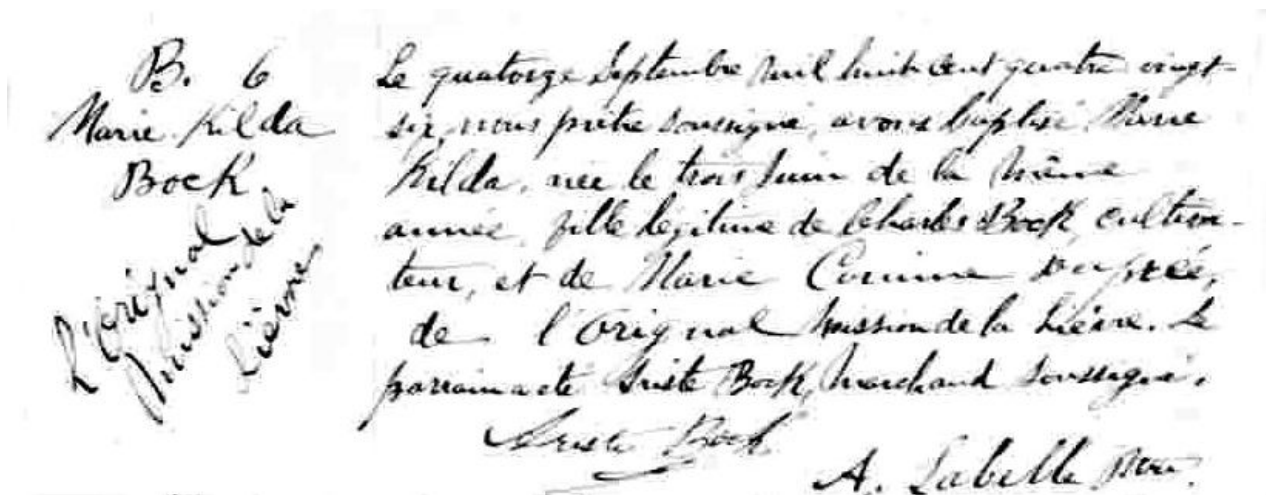 B. 6
Marie Kilda
Bock.
L'Orignal
Mission de la
Lièvre
Le quatorze Septembre mil huit cent quatre vingt-
six, nous prêtre soussigné, avons baptisé Marie
Kilda, née le trois Juin de la même
année, fille légitime de Charles Bock, cultiva-
teur, et de Marie Corinne
de l'Orignal mission de la Lièvre. Le
parrain a été Bock, Marchand soussigné.
Bock
A. Labelle Ptre.